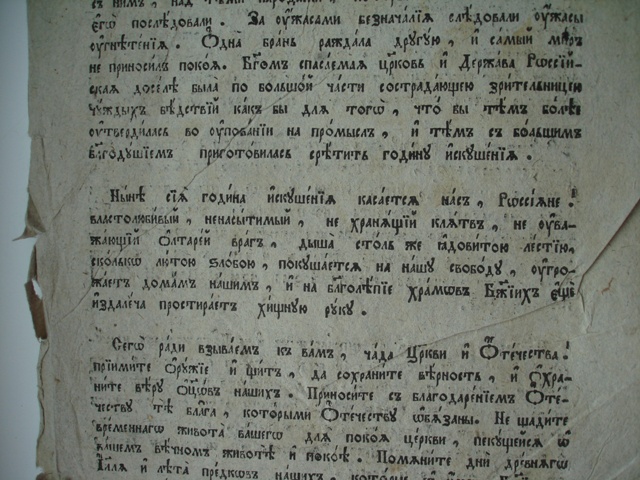 съ нимъ, надъ
єгѡ̀ послѣ́довали . За оу҆́жасами безнача́лїѧ слѣ́довали оу҆́жасы
оу҆гнѣте́нїѧ . Ѻ҆дна̀ бра́нь ражда́ла дрꙋгꙋ́ю , и҆ са́мый ми́ръ
не приноси́лъ поко́ѧ . Бг҃омъ спаса́емаѧ цр҃ковь и҆ Держа́ва Рѡссі́й-
скаѧ досе́лѣ была̀ по бо́льшой ча́сти сострада́ющею зри́тельницею
чꙋ́ждыхъ бѣ́дствїй ка́къ бы длѧ тогѡ̀ , что̀ бы тѣ́мъ бо́лѣе
оу҆тверди́лась во оу҆пова́нїи на про́мыслъ , и҆ тѣ́мъ съ бо́льшимъ
бл҃годꙋ́шїемъ приготовилась срѣ́тить годи́нꙋ и҆скꙋше́нїѧ .
Ны́нѣ сїѧ̀ годи́на и҆скꙋше́нїѧ каса́етсѧ на́съ , Рѡссїѧ́не !
властолюби́вый , ненасы́тимый , не хранѧ́щїй клѧ́твъ , не оу҆ва-
жа́ющїй ѻ҆лтаре́й вра́гъ , дыша̀ сто́ль же ꙗ҆дови́тою ле́стїю,
ско́лькѡ лю́тою ѕло́бою , покꙋша́етсѧ на на́шꙋ свобо́дꙋ , оу҆гро-
жа́етъ дома́мъ на́шимъ , и҆ на бл҃голѣ́пїе хра́мѡвъ Бж҃їихъ є҆щѐ
и҆здале́ча простира́етъ хи́щнꙋю рꙋ́кꙋ .
Сегѡ̀ ра́ди взыва́емъ къ ва́мъ , ча́да Цр҃кви и҆ Ѻ҆те́чества !
прїими́те ѻ҆рꙋ́жїе и҆ щи́тъ , да сохрани́те вѣ́рность , и҆ ѻ҆хра-
ни́те вѣ́рꙋ ѻ҆тцѡ́въ на́шихъ . Приноси́те съ благодаре́нїемъ Ѻ҆те-
честву тѣ̀ бл҃га̑ , которыми Ѻ҆те́чествꙋ ѡ҆бѧ́заны . Не щади́те
вре́меннагѡ живота̀ ва́шегѡ длѧ поко́ѧ це́ркви , пекꙋ́щейсѧ ѡ҆
ва́шемъ вѣ́чномъ животѣ̀ и҆ поко́ѣ . Помѧни́те дни̑ дре́внѧгѡ
І҆и҃лѧ и҆ лѣ̑та пре́дкѡвъ на́шихъ ,